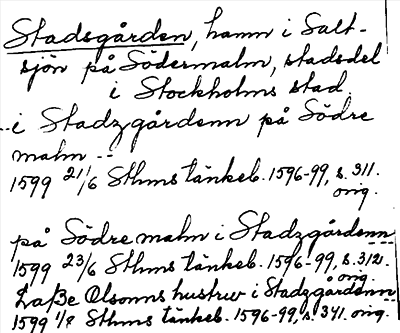 Stadsgården, hamn i Salt-
sjön på Södermalm, stadsdel
i Stockholms stad.
--i Stadzgårdenn på Södre
malm --
1599 21/6 Sthms tänkeb. 1596-99, s. 311.
orig.
på Södre malm i Stadzgårdenn
1599 23/6 Sthms tänkeb. 1596-99, s. 312.
orig.
Laße Olsonns hustrw i Stadzgårdenn
1599 1/8 Sthms tänkeb. 1596-99, s. 341. orig.